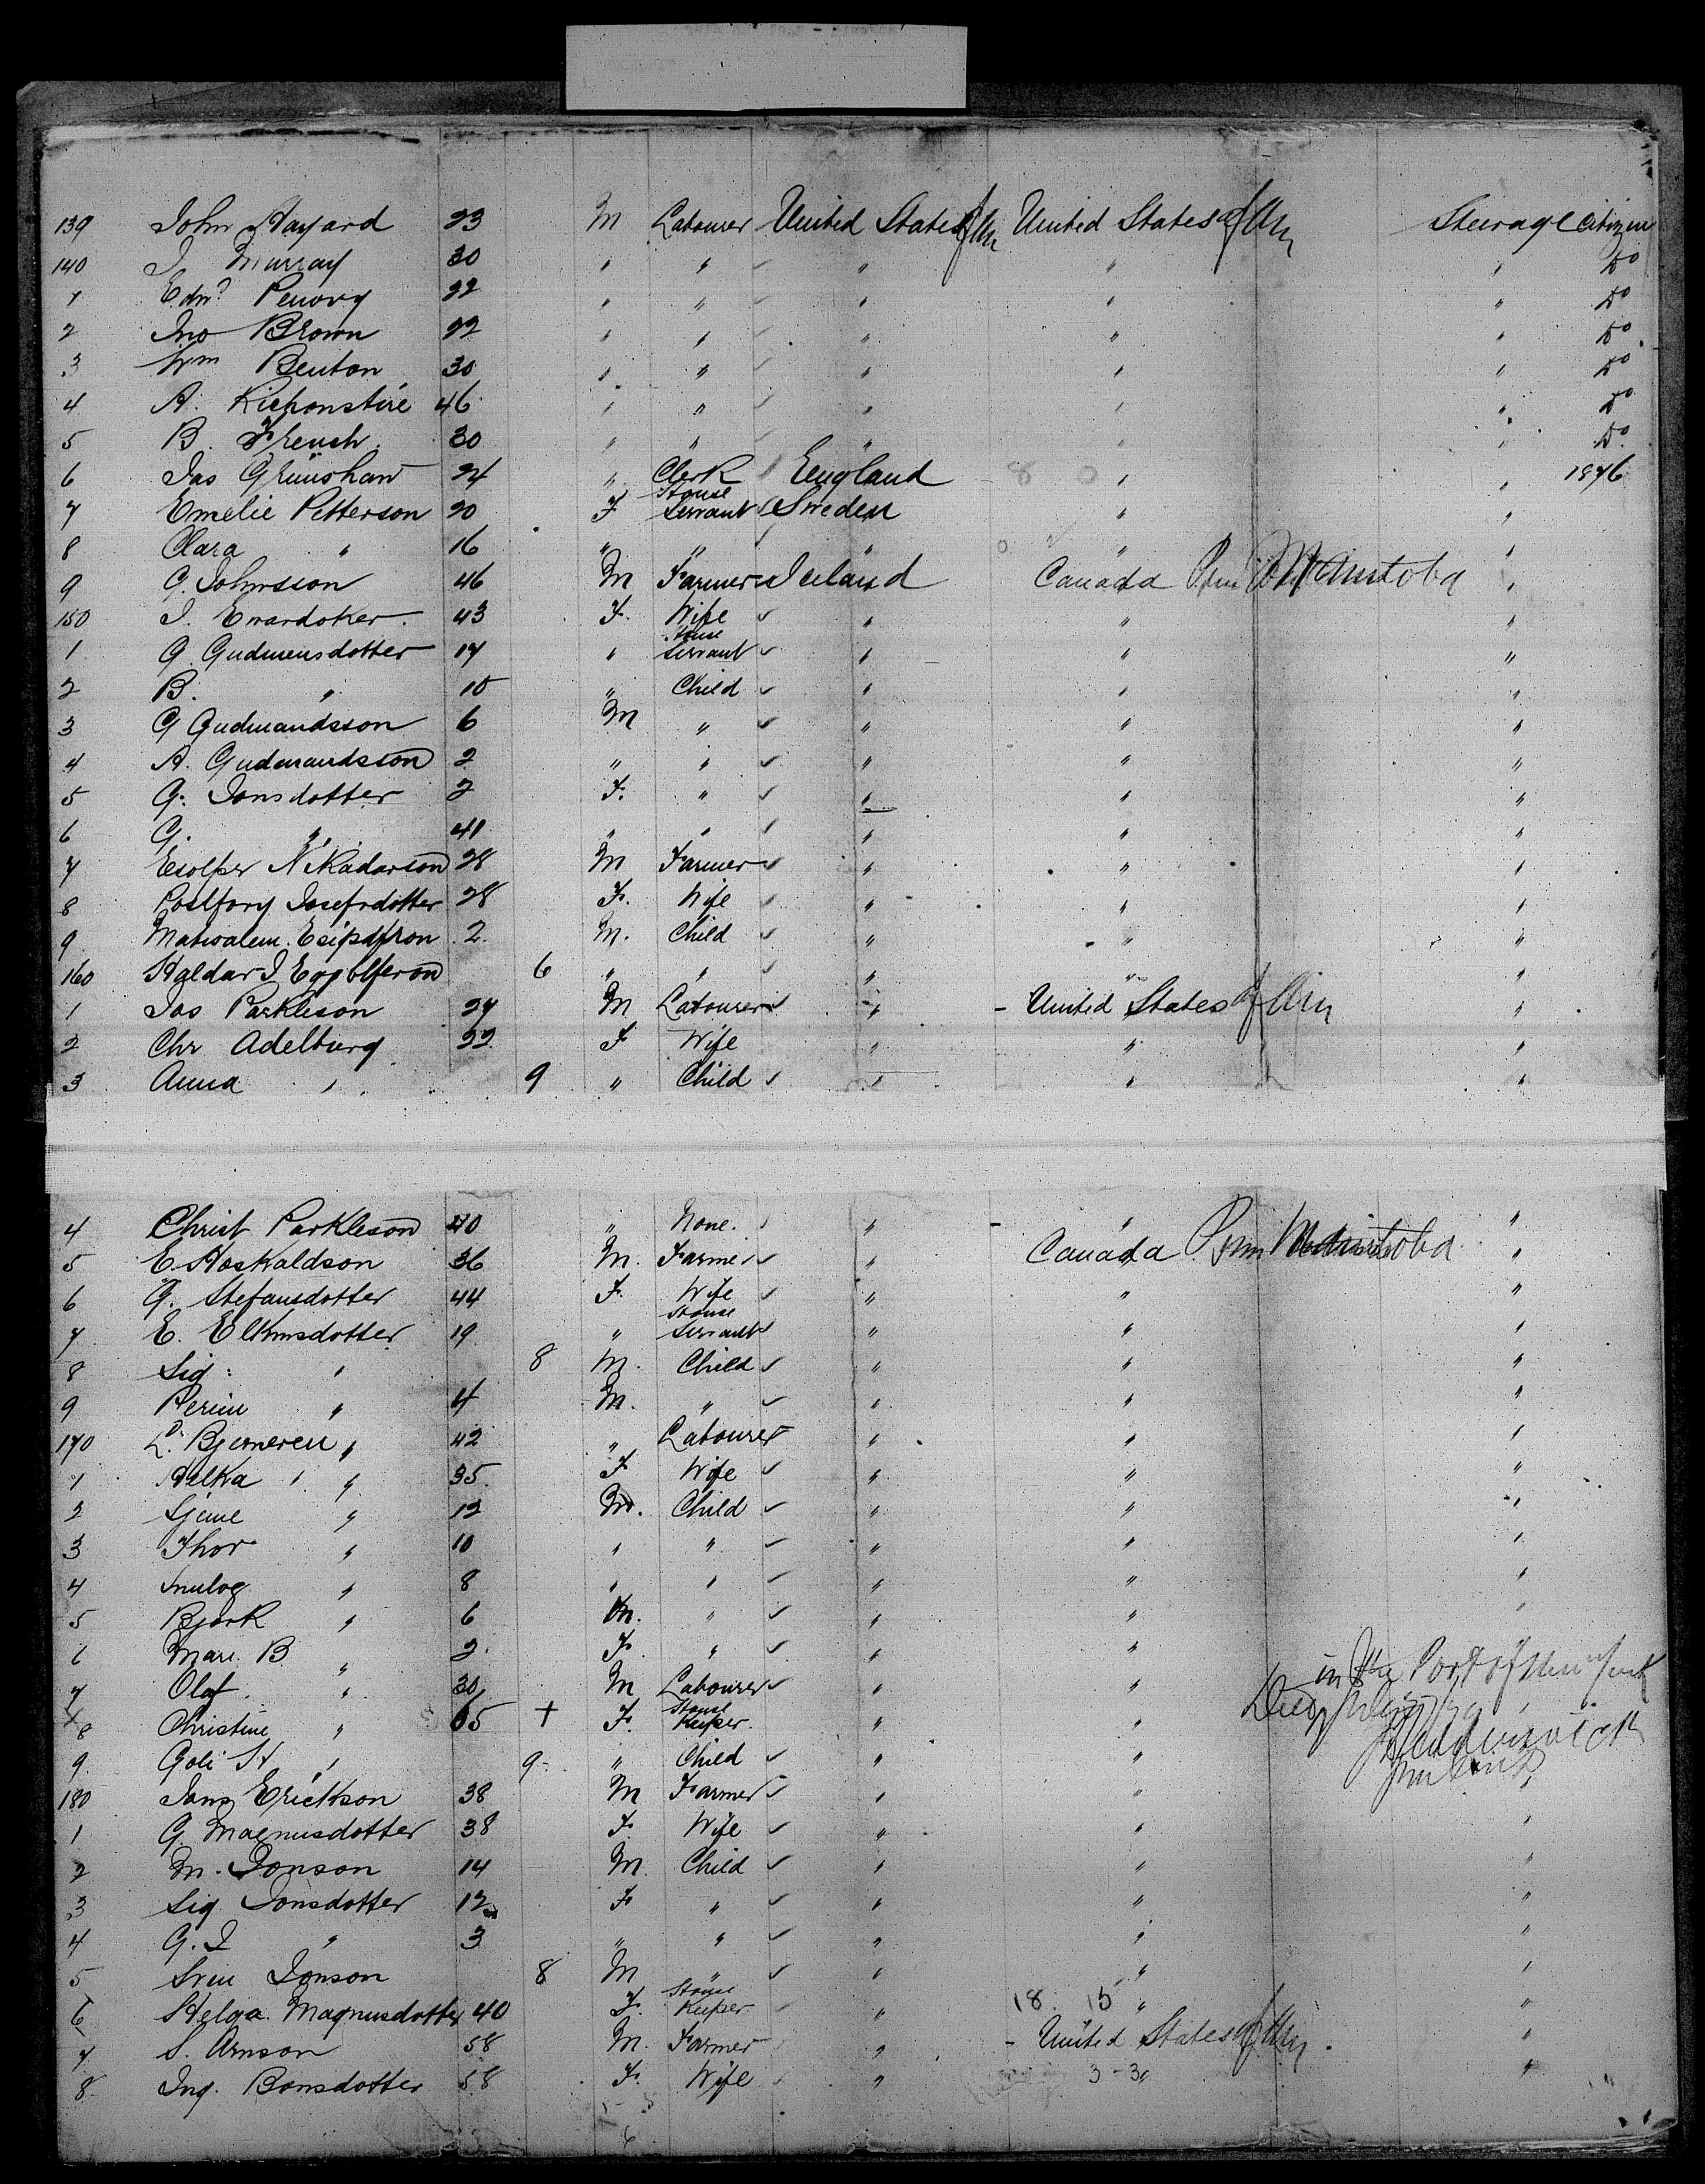 139 John Hayard 23 M Labourer United States of Am United States of Am Steerage Citizen
140 J. Murray 30 " " " " " Do
1 Edwd Penovy 22 " " " " " Do
2 Jno Brown 22 " " " " " Do
3 Wm Benton 30 " " " " " Do
4 A. Richonstine 46 " " " " " Do
5 B. French 30 " " " " " Do
6 Jas Grimshaw 24 " Clerk England " " 1876
7 Emelie Petterson 20 F House Servant Sweden " "
8 Clara " 16 " " " " "
9 G. Johnsson 46 M Farmer Iceland Canada Manitoba "
150 J. Enardoker 43 F. Wife " " "
1 G. Gudmensdotter 17 " House Servant " " "
2 B. " 10 " Child " " "
3 G Gudmandsson 6 M " " " "
4 A. Gudmandsson 2 " " " " "
5 G. Jonsdotter 2 F. " " " "
6 G. " 41 " " " " "
7 Esolper Nikadarson 28 M Farmer " " "
8 Josefsdotter 28 F. Wife " " "
9 2 M. Child " " "
160 Haldar J 6 " " " " "
1 Jas Parkleson 27 M Labourer " - United States of Am "
2 Chr Adelburg 22 F Wife " " "
3 Anna " 9 " Child " " "
4 Christ Parkleson 40 " None. " - " "
5 E. Hoskaldson 36 M. Farmer " Canada Manitoba "
6 G. Stefansdotter 44 F. Wife " " "
7 E. Elkmsdotter 19 " House Servant " " "
8 Sig: " 8 M. Child " " "
9 " 4 M. " " " "
170 L. Bjerneren " 42 " Labourer " " "
1 Helka " " 35 F Wife " " "
2 Sjeme " 12 M. Child " " "
3 Thor " 10 " " " " "
4 " 8 " " " " "
5 Bjork " 6 M. " " " "
6 Mari. B " 2 F. " " " "
7 Olaf " 30 M Labourer " " in the Port of New York
8 Christine " 65 + F. House Keeper " " Died
9 Goli St " 9 " Child " "
180 Jans Erickson 38 M Farmer " " "
1 G. Magnusdotter 38 F. Wife " " "
2 M. Jonson 14 M Child " " "
3 Sig Jonsdotter 12 F " " " "
4 G. J " 3 " " " " "
5 Sven Jonson 8 M " " " "
6 Helga Magnusdotter 40 F. House Keeper " 18 15 " "
7 S. Arnson 58 M. Farmer " - United States of Am "
8 Ing. Bonsdotter 58 F. Wife " 3-3 " "